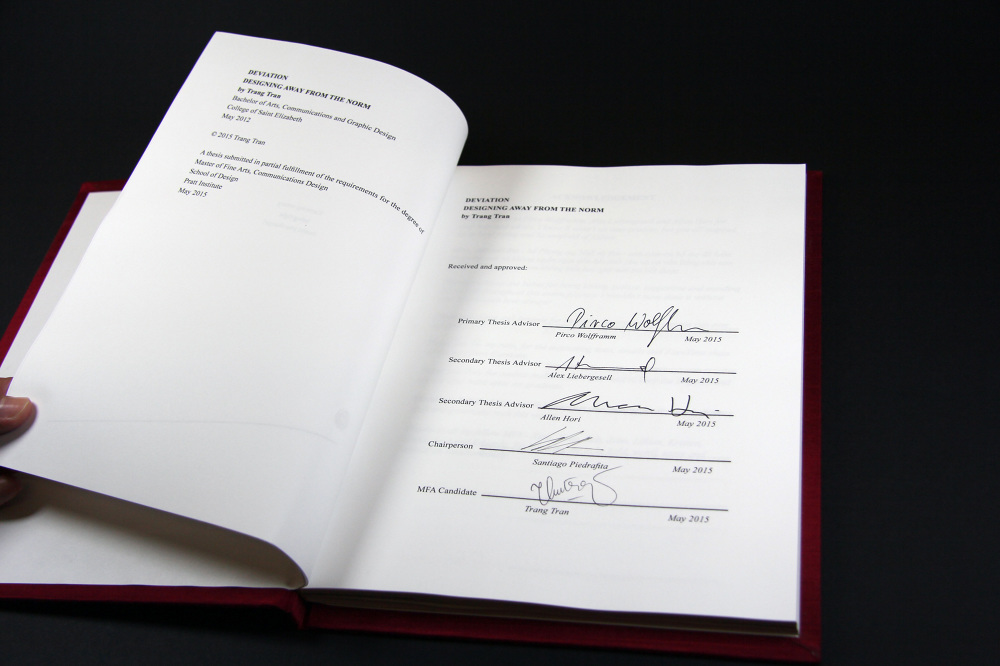 DEVIATION
DESIGNING AWAY FROM THE NORM
by Trang Tran
Bachelor of Arts, Communications and Graphic Design
College of Saint Elizabeth
May 2012
© 2015 Trang Tran
A thesis submitted in partial fulfillment of the requirements for the degree of
Master of Fine Arts, Communications Design
School of Design
Pratt Institute
May 2015
DEVIATION
DESIGNING AWAY FROM THE NORM
by Trang Tran
Received and approved:
Primary Thesis Advisor Pirco Wolffram
Pirco Wolfframm May 2015
Secondary Thesis Advisor
Alex Liebergesell May 2015
Secondary Thesis Advisor
Allen Hori May 2015
Chairperson
Santiago Piedrafita May 2015
MFA Candidate
Trang Tran May 2015